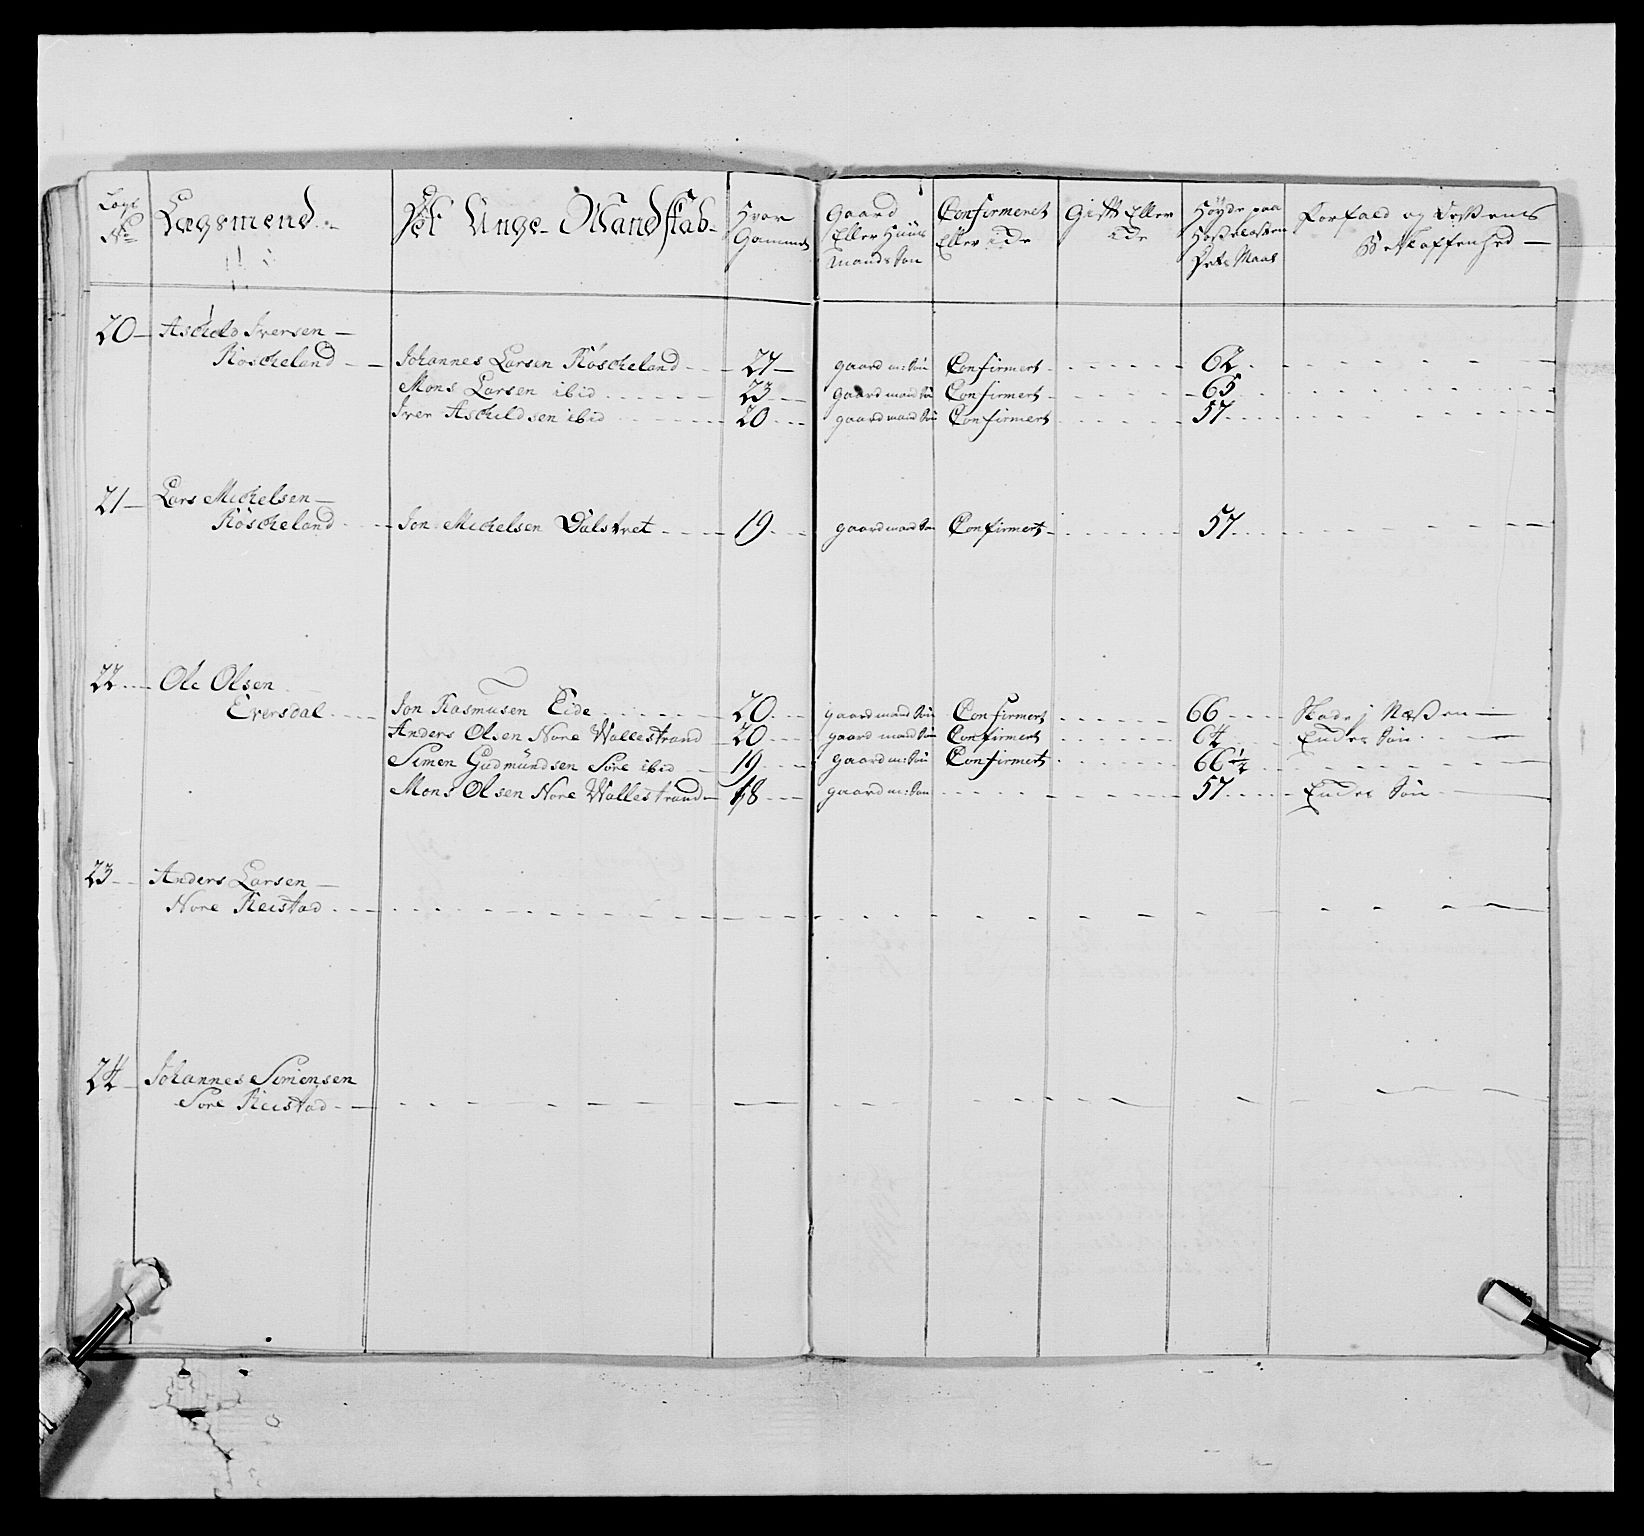 Lægs No Lægsmend Det Unge Mandskab Hvor Gammel Gaard Eller Huus Mands Søn Confirmeret Eller Ide Gift Eller Ide Høyde paa
Forfald og
20 Aschild Iversen
Röscheland Johannes Larsen Röscheland 27 gaard m: Søn Confirmert 62
Mons Larsen ibid 23 gaard mand Søn Confirmert 65
Iver Aschildsen ibid 20 gaard mand Søn Confirmert 57
21 Lars Michelsen
Röscheland Jon Michelsen Dalstret 19 gaard mand Søn Confirmert 57
22 Ole Olsen
Eversdal Jon Rasmusen Eide 20 gaard mand Søn Confirmert 66
Anders Olsen Nore Wallestrand 20 gaard mand Søn Confirmert 64
Simen Gudmundsen Sore ibid 19 gaard m: Søn Confirmert 66 1/2
Mons Olsen Nore Wallestrand 18 gaard m: Søn 57
23 Anders Larsen
Nore Reistad
24 Johannes Simensen
Sore Reistad